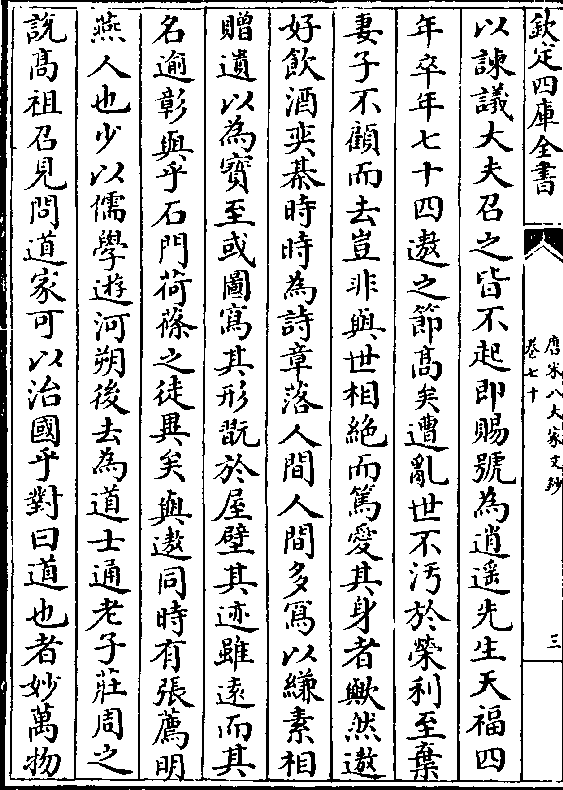 欽定四庫全書
唐宋八大家文鈔
卷七十
三
以諫議大夫召之皆不起即賜號為逍遥先生天福四
年卒年七十四遨之節髙矣遭亂世不污於榮利至棄
妻子不顧而去豈非與世相絶而篤愛其身者歟然遨
好飲酒奕棊時時為詩章落人間人間多寫以縑素相
贈遺以為寳至或圖寫其形翫於屋壁其迹雖逺而其
名逾彰與乎石門荷蓧之徒異矣與遨同時有張薦明
燕人也少以儒學遊河朔後去為道士通老子莊周之
說髙祖召見問道家可以治國乎對曰道也者妙萬物